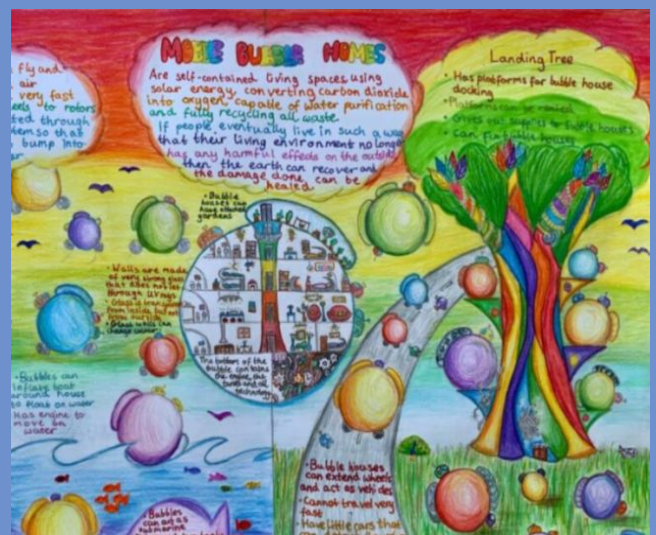 fly and
air
very fast
to rotors
ted through
so that
bump into
MOBILE BUBBLE HOMES
Are self-contained living spaces using
solar energy, converting carbon dioxide
into oxygen, capable of water purification
and fully recycling all waste.
If people eventually live in such a way
that their living environment no longer
has any harmful effects on the outside
then the earth can recover and
the damage done can be
healed.
Landing Tree
• Has platforms for bubble house
docking
• Platforms can be rented
• Gives out supplies to bubble houses
• Can fix bubble houses
• Bubble
houses can
have
gardens
• Walls are made
of very strong glass
that does not let
through UV rays
• Glass is
from inside but not
from outside
• Glass walls can
change colour
The bottom of the
bubble contains
the engine,
and all
technology
• Bubbles can
inflate boat
around house
to float on water
Has engine to
move on
water
• Bubbles
can act as
submarine
• Bubble houses
can extend wheels
and act as vehicles
• Cannot travel very
fast
• Have little cars that